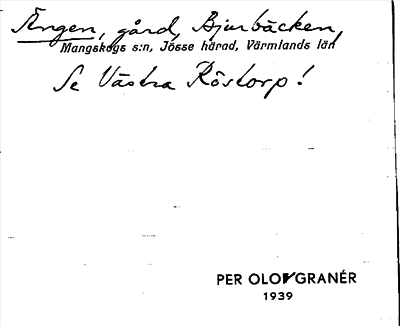 Ängen, gård, Bjurbäcken,
Mangskogs s:n, Jösse härad, Värmlands län
Se Västra Röstorp!
PER OLOF GRANÉR
1939